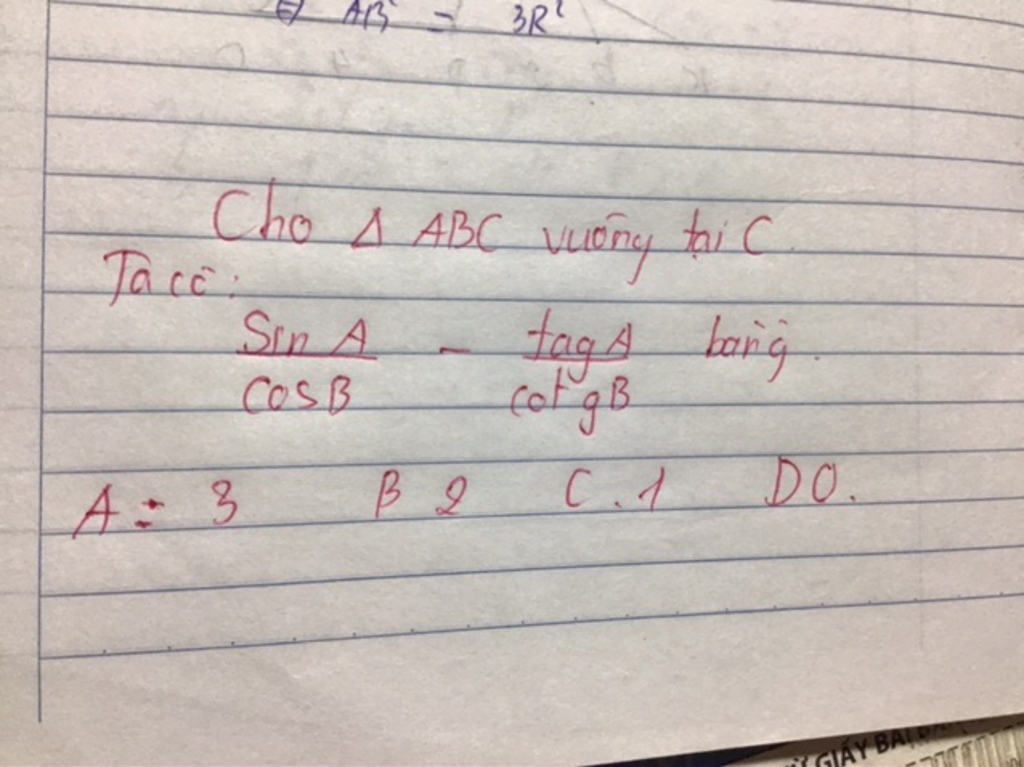 AB² = 3R²
Cho Δ ABC vuông tại C.
Ta có:
Sin A / cosB - tagA / cotgB bằng.
A = 3 B 2 C. 1 D 0.
GIẤY BÃI BẰNG